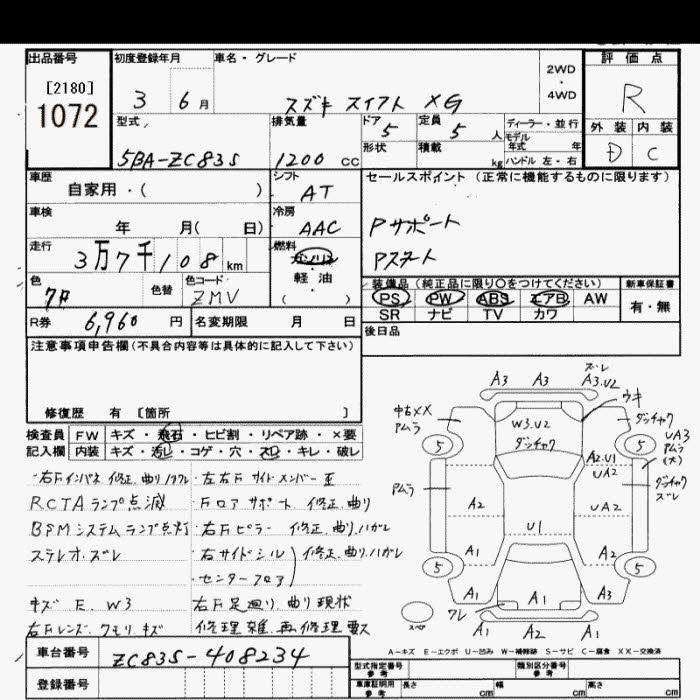 出品番号
[2180]
1072
初度登録年月
3 6月
車名・グレード
スズキ スイフト XG
2WD
・
4WD
評価点
R
外装 内装
D C
型式
5BA-ZC83S
排気量
1200 cc
ドア
5
定員
5 人
形状
積載
kg
ディーラー・並行
モデル
年式 年
ハンドル 左・右
車歴
自家用・( )
シフト
AT
車検
年 月( 日)
冷房
AAC
走行
3万7千108 km
燃料
ガソリン
・
軽油
( )
色
クロ
色替
色コード
ZMV
R券 6,960 円
名変期限 月 日
セールスポイント (正常に機能するものに限ります)
Pサポート
Pスタート
装備品 (純正品に限り○をつけてください)
PS PW ABS エアB AW
SR ナビ TV カワ
新車保証書
有・無
後日品
注意事項申告欄(不具合内容等は具体的に記入して下さい)
修復歴 有 [箇所 ]
検査員
記入欄
FW キズ・飛石・ヒビ割・リペア跡・×要
内装 キズ・汚レ・コゲ・穴・スレ・キレ・破レ
・右Fインパネ 修正、曲り/ワレ
・左右Fサイドメンバー 歪
RCTAランプ点滅
・フロアサポート 修正、曲り
BSMシステムランプ点灯
・右Fピラー 修正、曲り、ハガレ
ステレオ、ズレ
・右サイドシル
・センターフロア
修正、曲り、ハガレ
キズ E、W3
右F足廻り、曲り現状
右Fレンズ、クモリ、キズ
修理雑、再修理要ス
A3 A3
ズレ
A3.U2
ウキ
中古メX
アムラ
W3.U2
ダッチャク
ダッチャク
UA3
アムラ
(大)
5 5
A2.U1
UA2
アムラ
ダッチャク
ズレ
A2
UA2
U1
A1
A2
5 5
A1
A3
ワレ
A1
A1 A2
A1
スペア
A-キズ E-エクボ U-凹み W-補修跡 S-サビ C-腐食 XX-交換済
車台番号
ZC83S-408234
登録番号
型式指定番号
参考
類別区分番号
参考
車庫証明用
参考
長さ cm
幅 cm
高さ cm